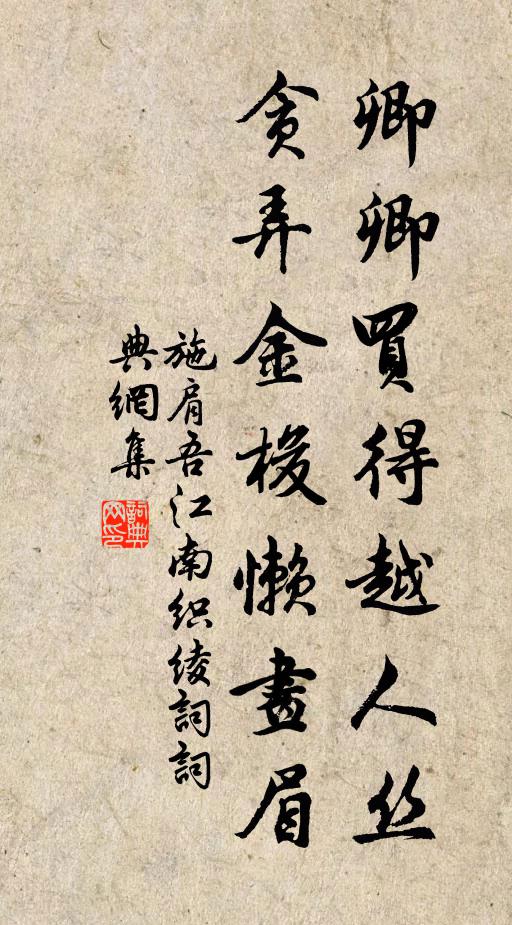 卿卿買得越人丝
贪弄金梭懒畫眉
施肩吾江南织绫詞詞
典網集
詞典
网印